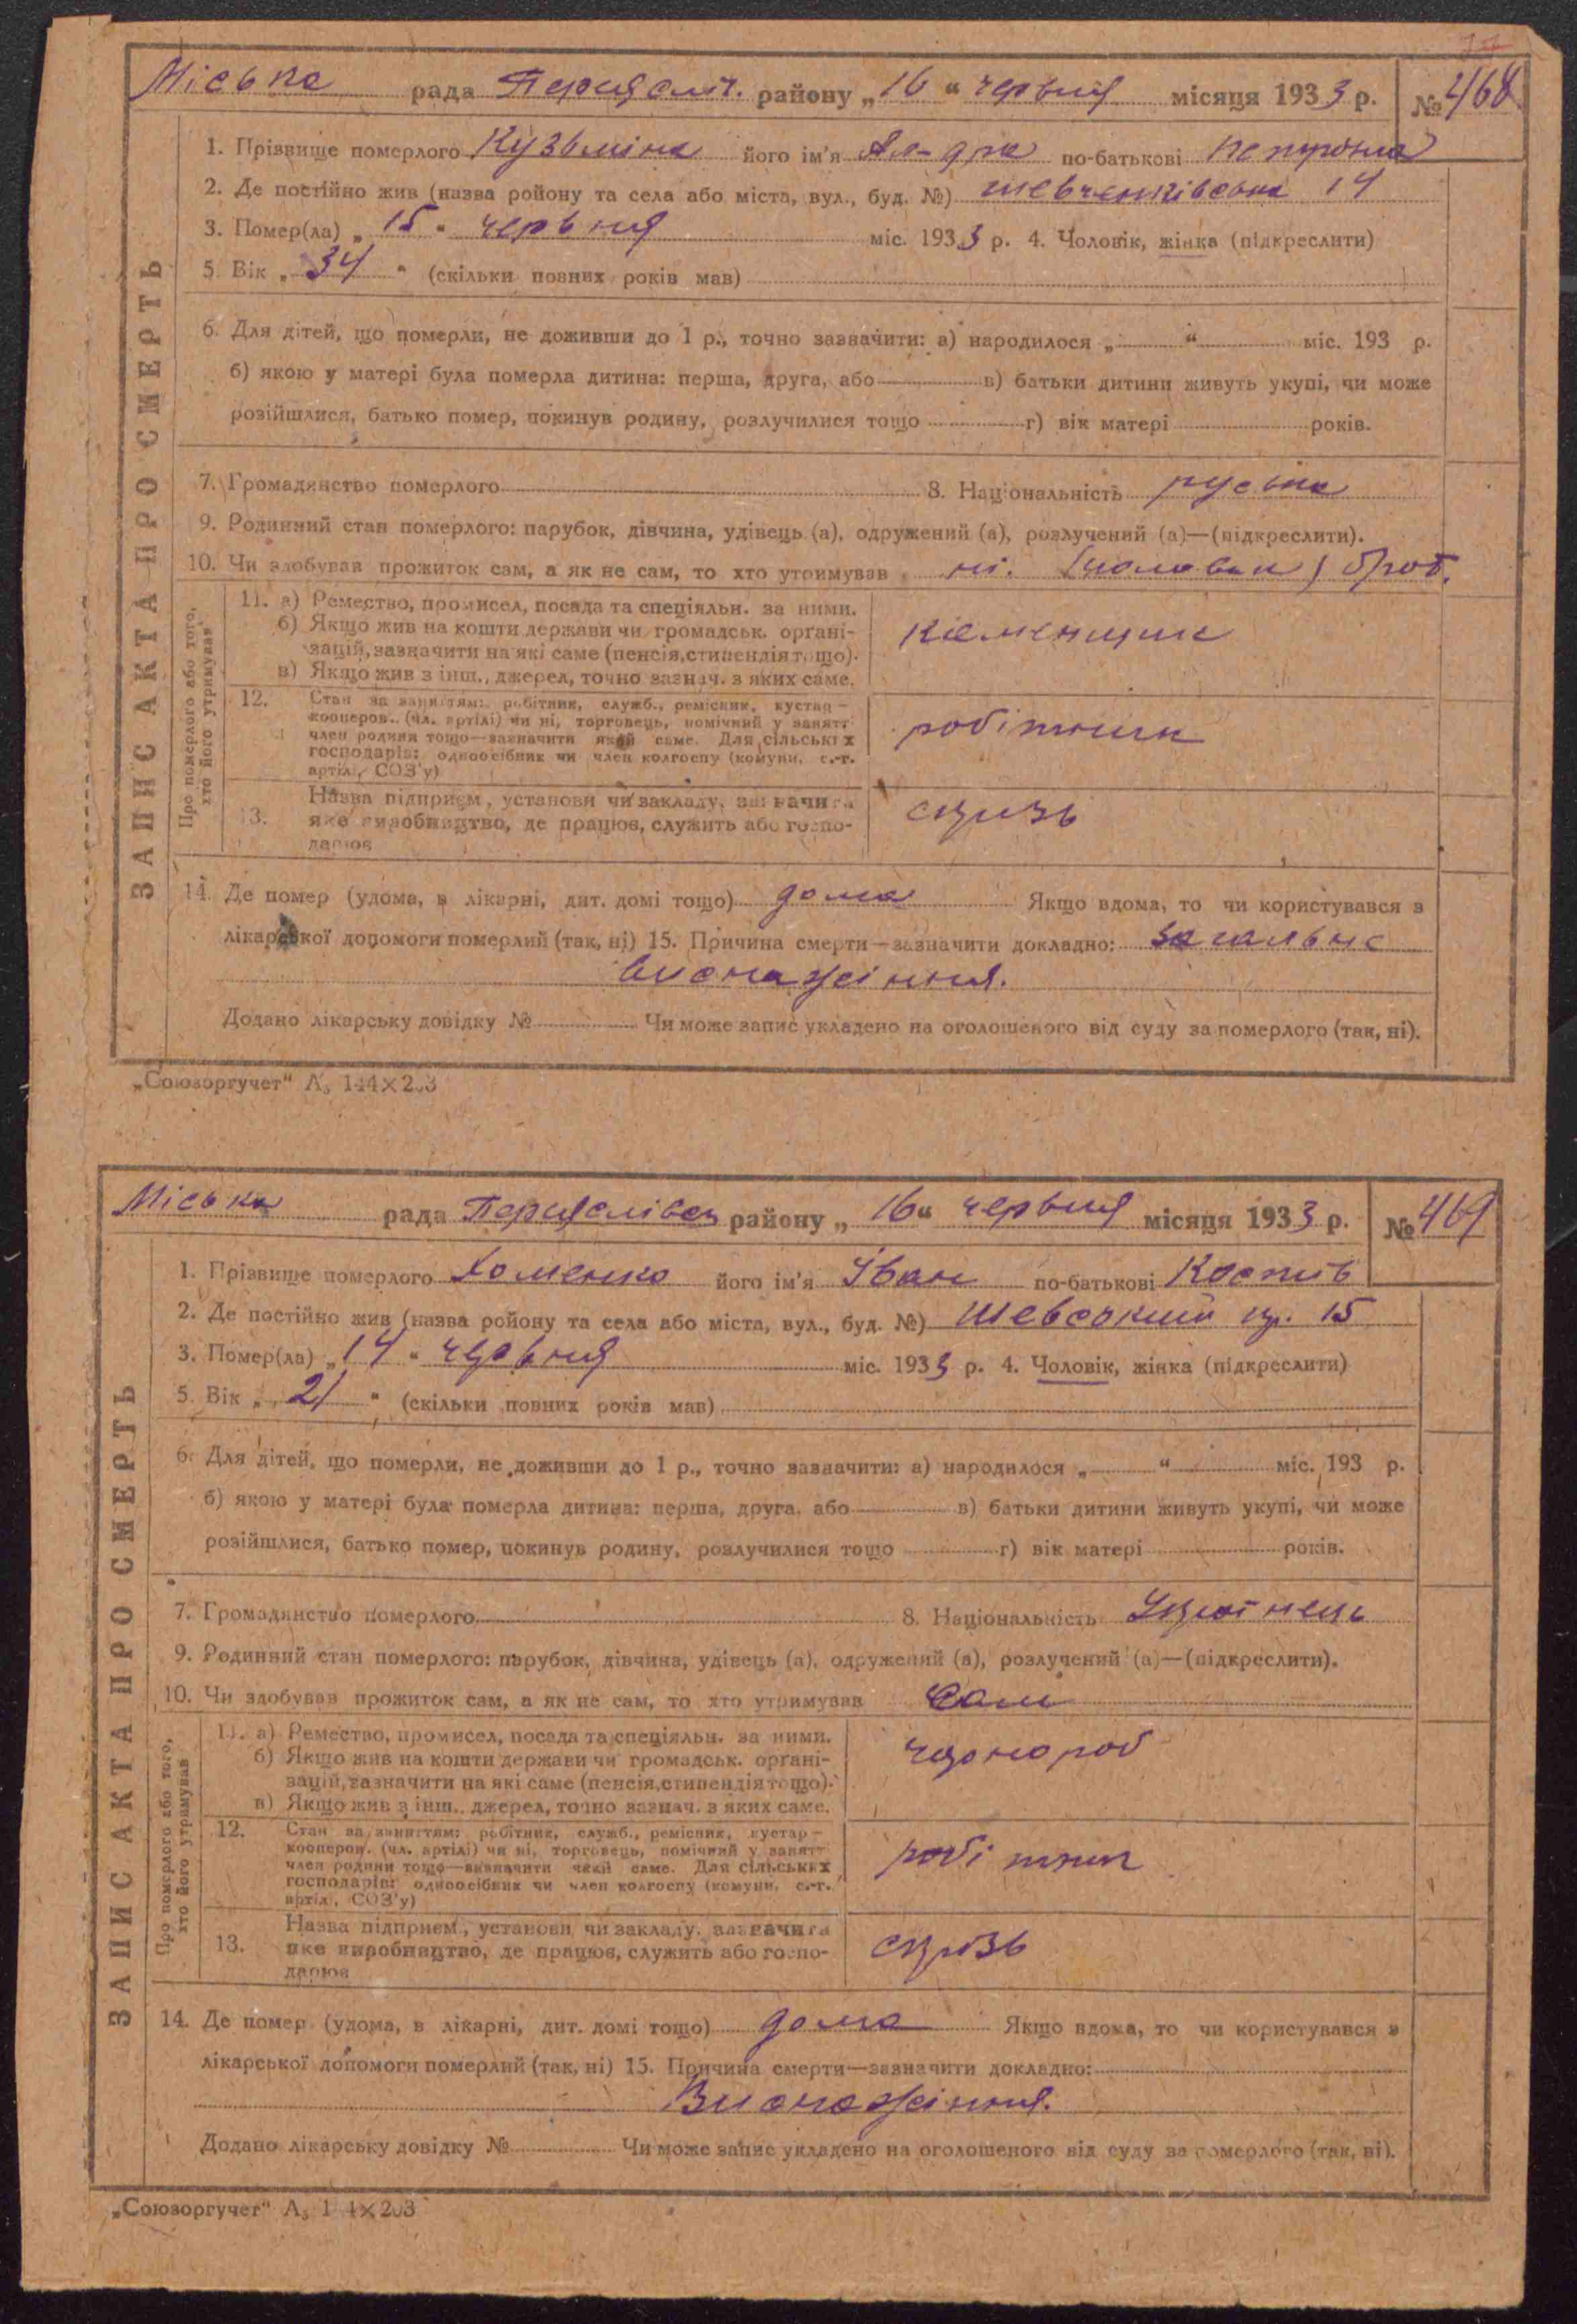 77
Міська рада Переяслів. району „16“ червня місяця 1933 р. №468
ЗАПИС АКТА ПРО СМЕРТЬ
1. Прізвище померлого Кузьміна його ім'я Ал-дра по-батькові Петровна
2. Де постійно жив (назва ройону та села або міста, вул., буд. №) Шевченківська 14
3. Помер(ла) „15“ червня міс. 1933 р. 4. Чоловік, жінка (підкреслити)
5. Вік „34“ (скільки повних років мав)
6. Для дітей, що померли, не доживши до 1 р., точно зазначити: а) народилося „ “ міс. 193 р.
б) якою у матері була померла дитина: перша, друга, або в) батьки дитини живуть укупі, чи може
розійшлися, батько помер, покинув родину, розлучилися тощо г) вік матері років.
7. Громадянство померлого 8. Національність руська
9. Родинний стан померлого: парубок, дівчина, удівець (а), одружений (а), розлучений (а)—(підкреслити).
10. Чи здобував прожиток сам, а як не сам, то хто утримував ні. (чоловік)
Про померлого або того, хто його утримував
11. а) Ремество, промисел, посада та спеціяльн. за ними.
б) Якщо жив на кошти держави чи громадськ. органі-
зацій, зазначити на які саме (пенсія, стипендія тощо).
в) Якщо жив з інш., джерел, точно зазнач. з яких саме.
каменщик
12. Стан за заняттям: робітник, служб., ремісник, кустар—
кооперов. (чл. артілі) чи ні, торговець, помічний у занятт
член родини тощо—зазначити який саме. Для сільських
господарів: одноосібник чи член колгоспу (комуни, с.-г.
артілі, СОЗ'у)
робітник
13. Назва підприєм., установи чи закладу, зазначити
яке виробництво, де працює, служить або госпо-
дарює
скрізь
14. Де помер (удома, в лікарні, дит. домі тощо) дома Якщо вдома, то чи користувався з
лікарської допомоги померлий (так, ні) 15. Причина смерти—зазначити докладно: загальне
виснаження.
Додано лікарську довідку № Чи може запис укладено на оголошеного від суду за померлого (так, ні).
„Союзоргучет“ А₅ 144×203
Міська рада Переяслівск району „16“ червня місяця 1933 р. №469
ЗАПИС АКТА ПРО СМЕРТЬ
1. Прізвище померлого Хоменко його ім'я Іван по-батькові Костів
2. Де постійно жив (назва ройону та села або міста, вул., буд. №) 15
3. Помер(ла) „14“ червня міс. 1933 р. 4. Чоловік, жінка (підкреслити)
5. Вік „21“ (скільки повних років мав)
6. Для дітей, що померли, не доживши до 1 р., точно зазначити: а) народилося „ “ міс. 193 р.
б) якою у матері була померла дитина: перша, друга, або в) батьки дитини живуть укупі, чи може
розійшлися, батько помер, покинув родину, розлучилися тощо г) вік матері років.
7. Громадянство померлого 8. Національність Українець
9. Родинний стан померлого: парубок, дівчина, удівець (а), одружений (а), розлучений (а)—(підкреслити).
10. Чи здобував прожиток сам, а як не сам, то хто утримував Сам
Про померлого або того, хто його утримував
11. а) Ремество, промисел, посада та спеціяльн. за ними.
б) Якщо жив на кошти держави чи громадськ. органі-
зацій, зазначити на які саме (пенсія, стипендія тощо).
в) Якщо жив з інш., джерел, точно зазнач. з яких саме.
чорнороб
12. Стан за заняттям: робітник, служб., ремісник, кустар—
кооперов. (чл. артілі) чи ні, торговець, помічний у занятт
член родини тощо—зазначити який саме. Для сільських
господарів: одноосібник чи член колгоспу (комуни, с.-г.
артілі, СОЗ'у)
робітник
13. Назва підприєм., установи чи закладу, зазначити
яке виробництво, де працює, служить або госпо-
дарює
скрізь
14. Де помер (удома, в лікарні, дит. домі тощо) дома Якщо вдома, то чи користувався з
лікарської допомоги померлий (так, ні) 15. Причина смерти—зазначити докладно:
Виснаження.
Додано лікарську довідку № Чи може запис укладено на оголошеного від суду за померлого (так, ні).
„Союзоргучет“ А₅ 144×203